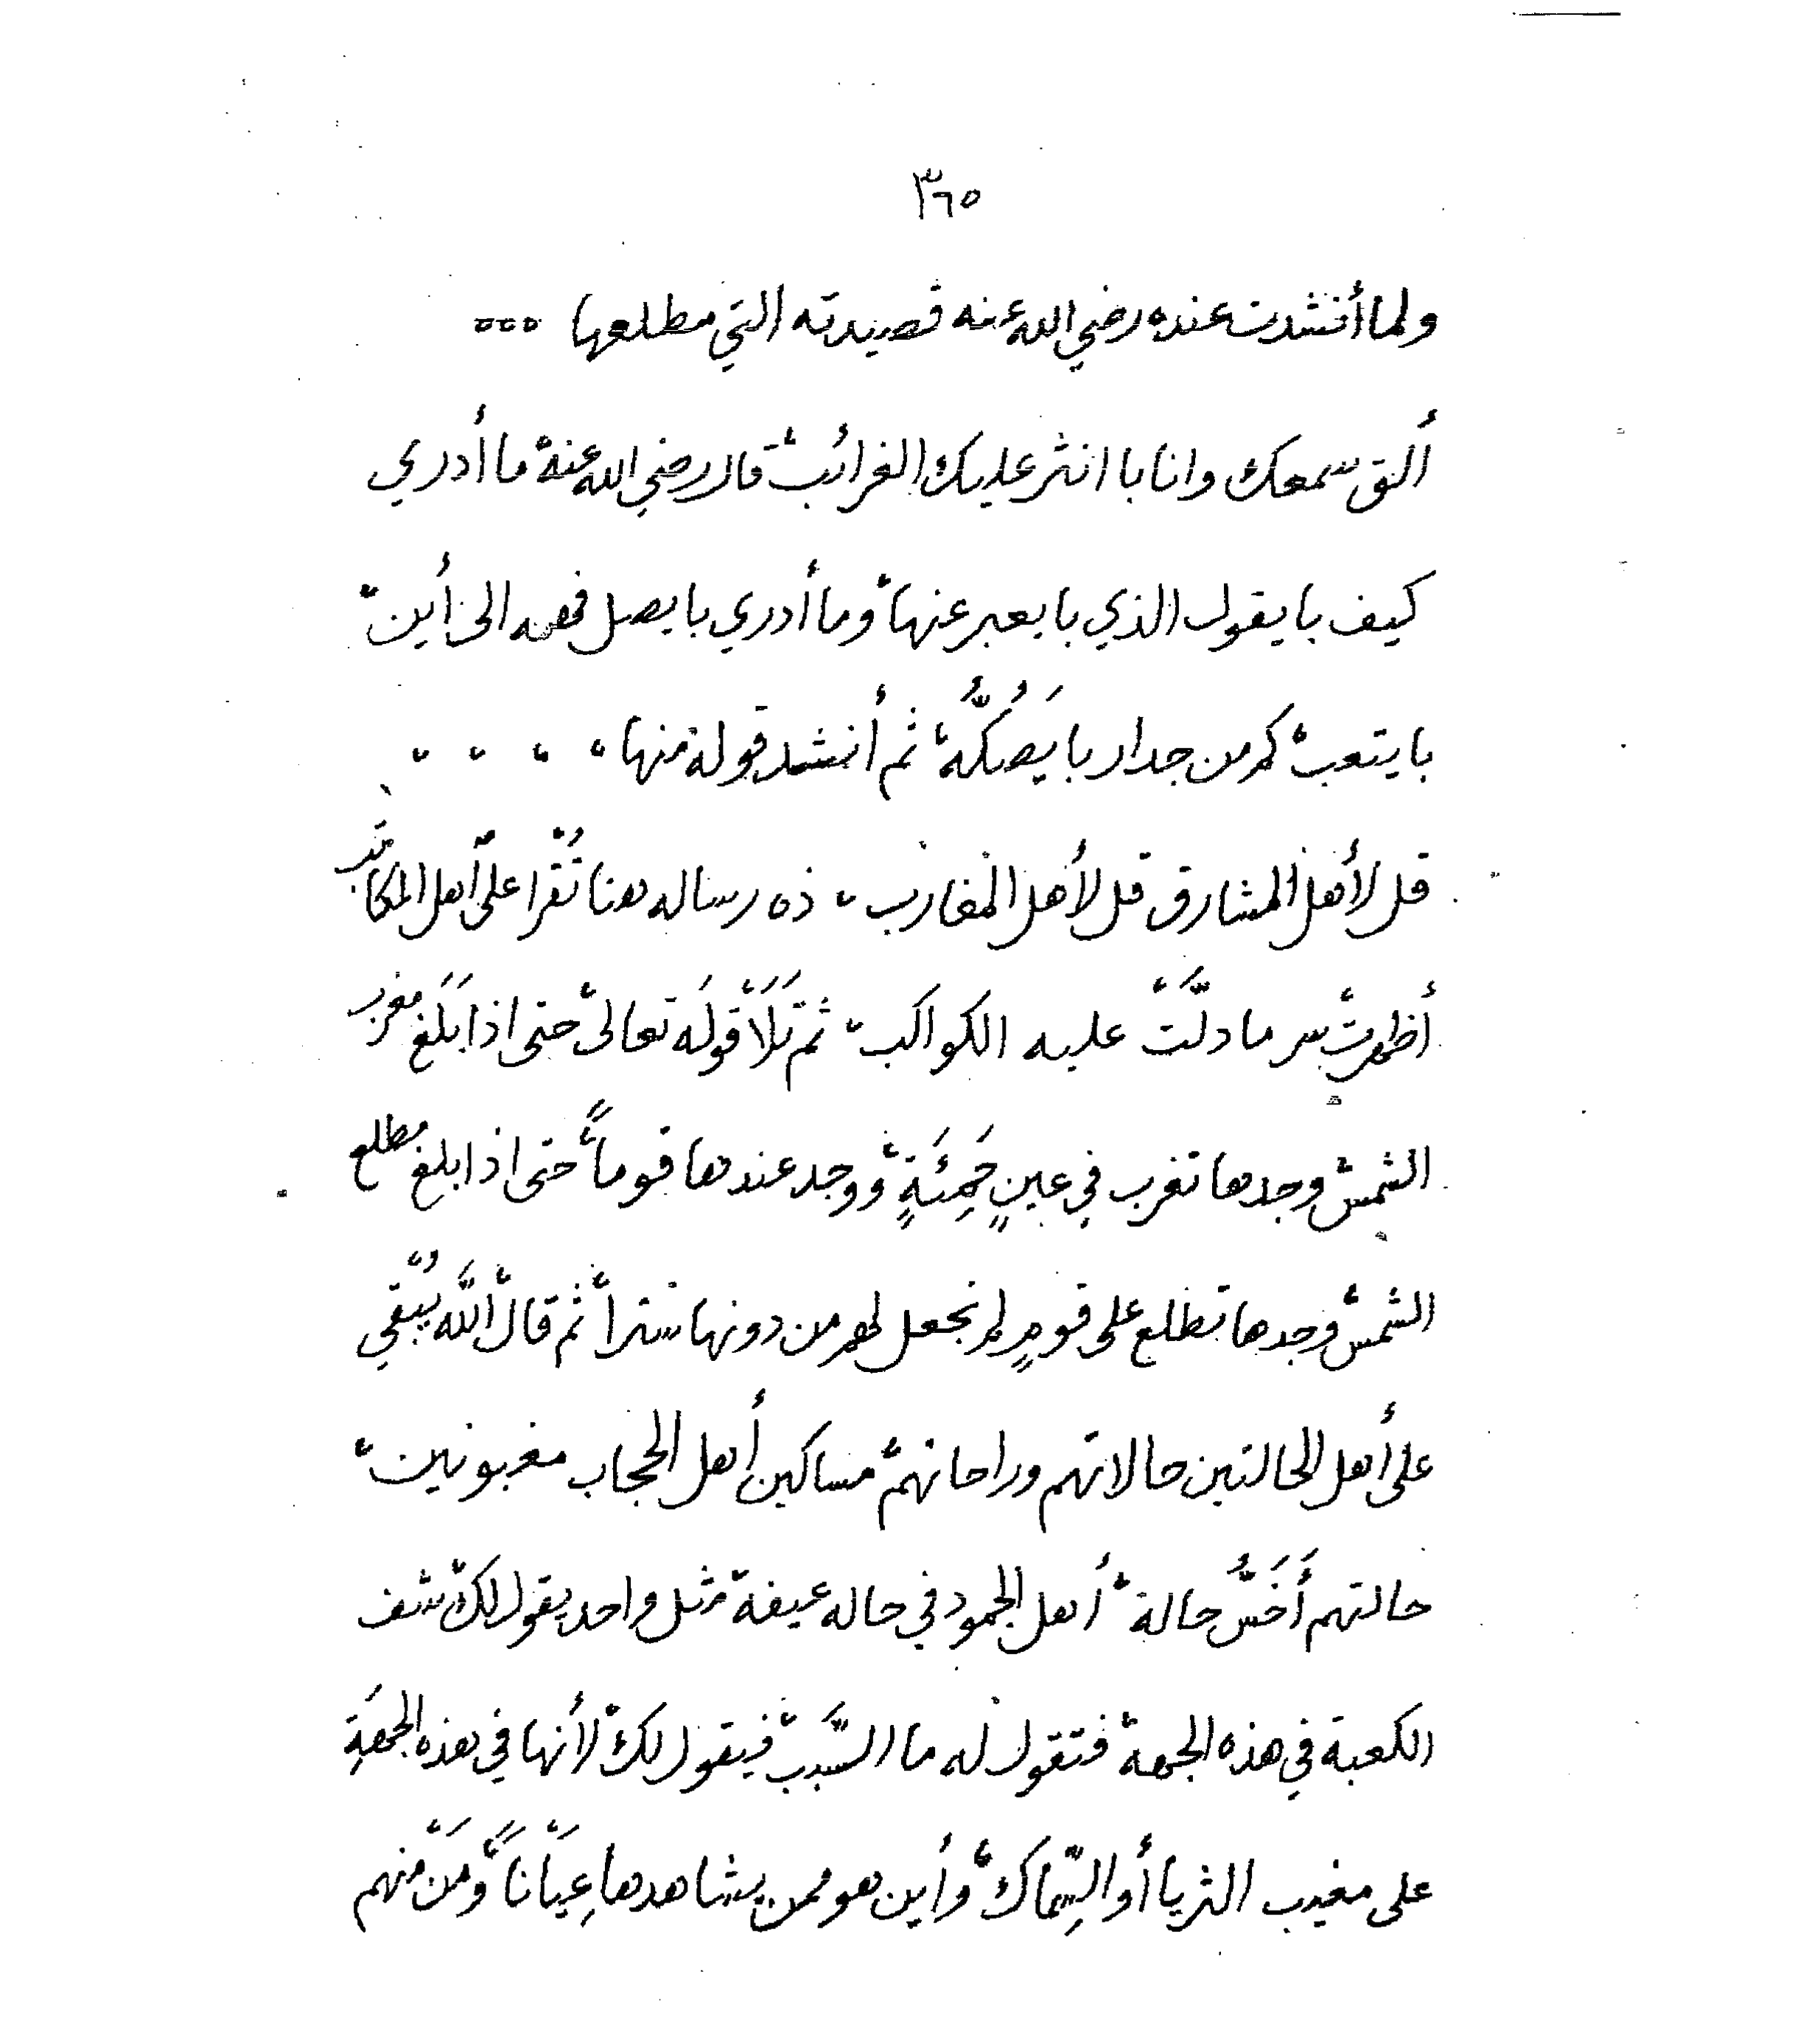 ٣٦٥
ولما أنشدت عنده رضي الله عنه قصيدته التي مطلعها ...
ألق سمعك وانا با انثر عليك الغرائب، قال رضي الله عنه، ما أدري
كيف با يقول الذي با يعبر عنها، وما أدري با يصل فهمه الى أين،
با يتعب، كم من جدار با يَصُكُّه، ثم أنشد قوله منها، ، ، ،
قل لأهل المشارق قل لأهل المغارب، ذه رساله هنا تُقْرا على أهل المكاتب
أظهرت سر ما دلَّتْ عليه الكواكب، ثم تَلَا، قولَه تعالى، حتى اذا بَلَغَ مغرب
الشمس، وجدها تغرب في عينٍ حَمِئَةٍ، ووجد عندها قوماً، حتى اذا بلغ مطلع
الشمس، وجدها تطلع على قومٍ لم نجعل لهم من دونها ستراً، ثم قال، اللَّه يُبْقي
على أهل الحالتين حالاتهم وراحاتهم، مساكين أهل الحجاب مغبونين،
حالتهم أَخَسُّ حالة، أهل الجمود في حاله عيفة، مثل واحد يقول لك، شف
الكعبة في هذه الجهة، فتقول له ما السَّبب، فيقول لك، لأنها في هذه الجهَةِ
على مغيب الثريا أو السِّمَاك، وأين هو ممن يشاهدها عِيَاناً، ومَنْ منهم